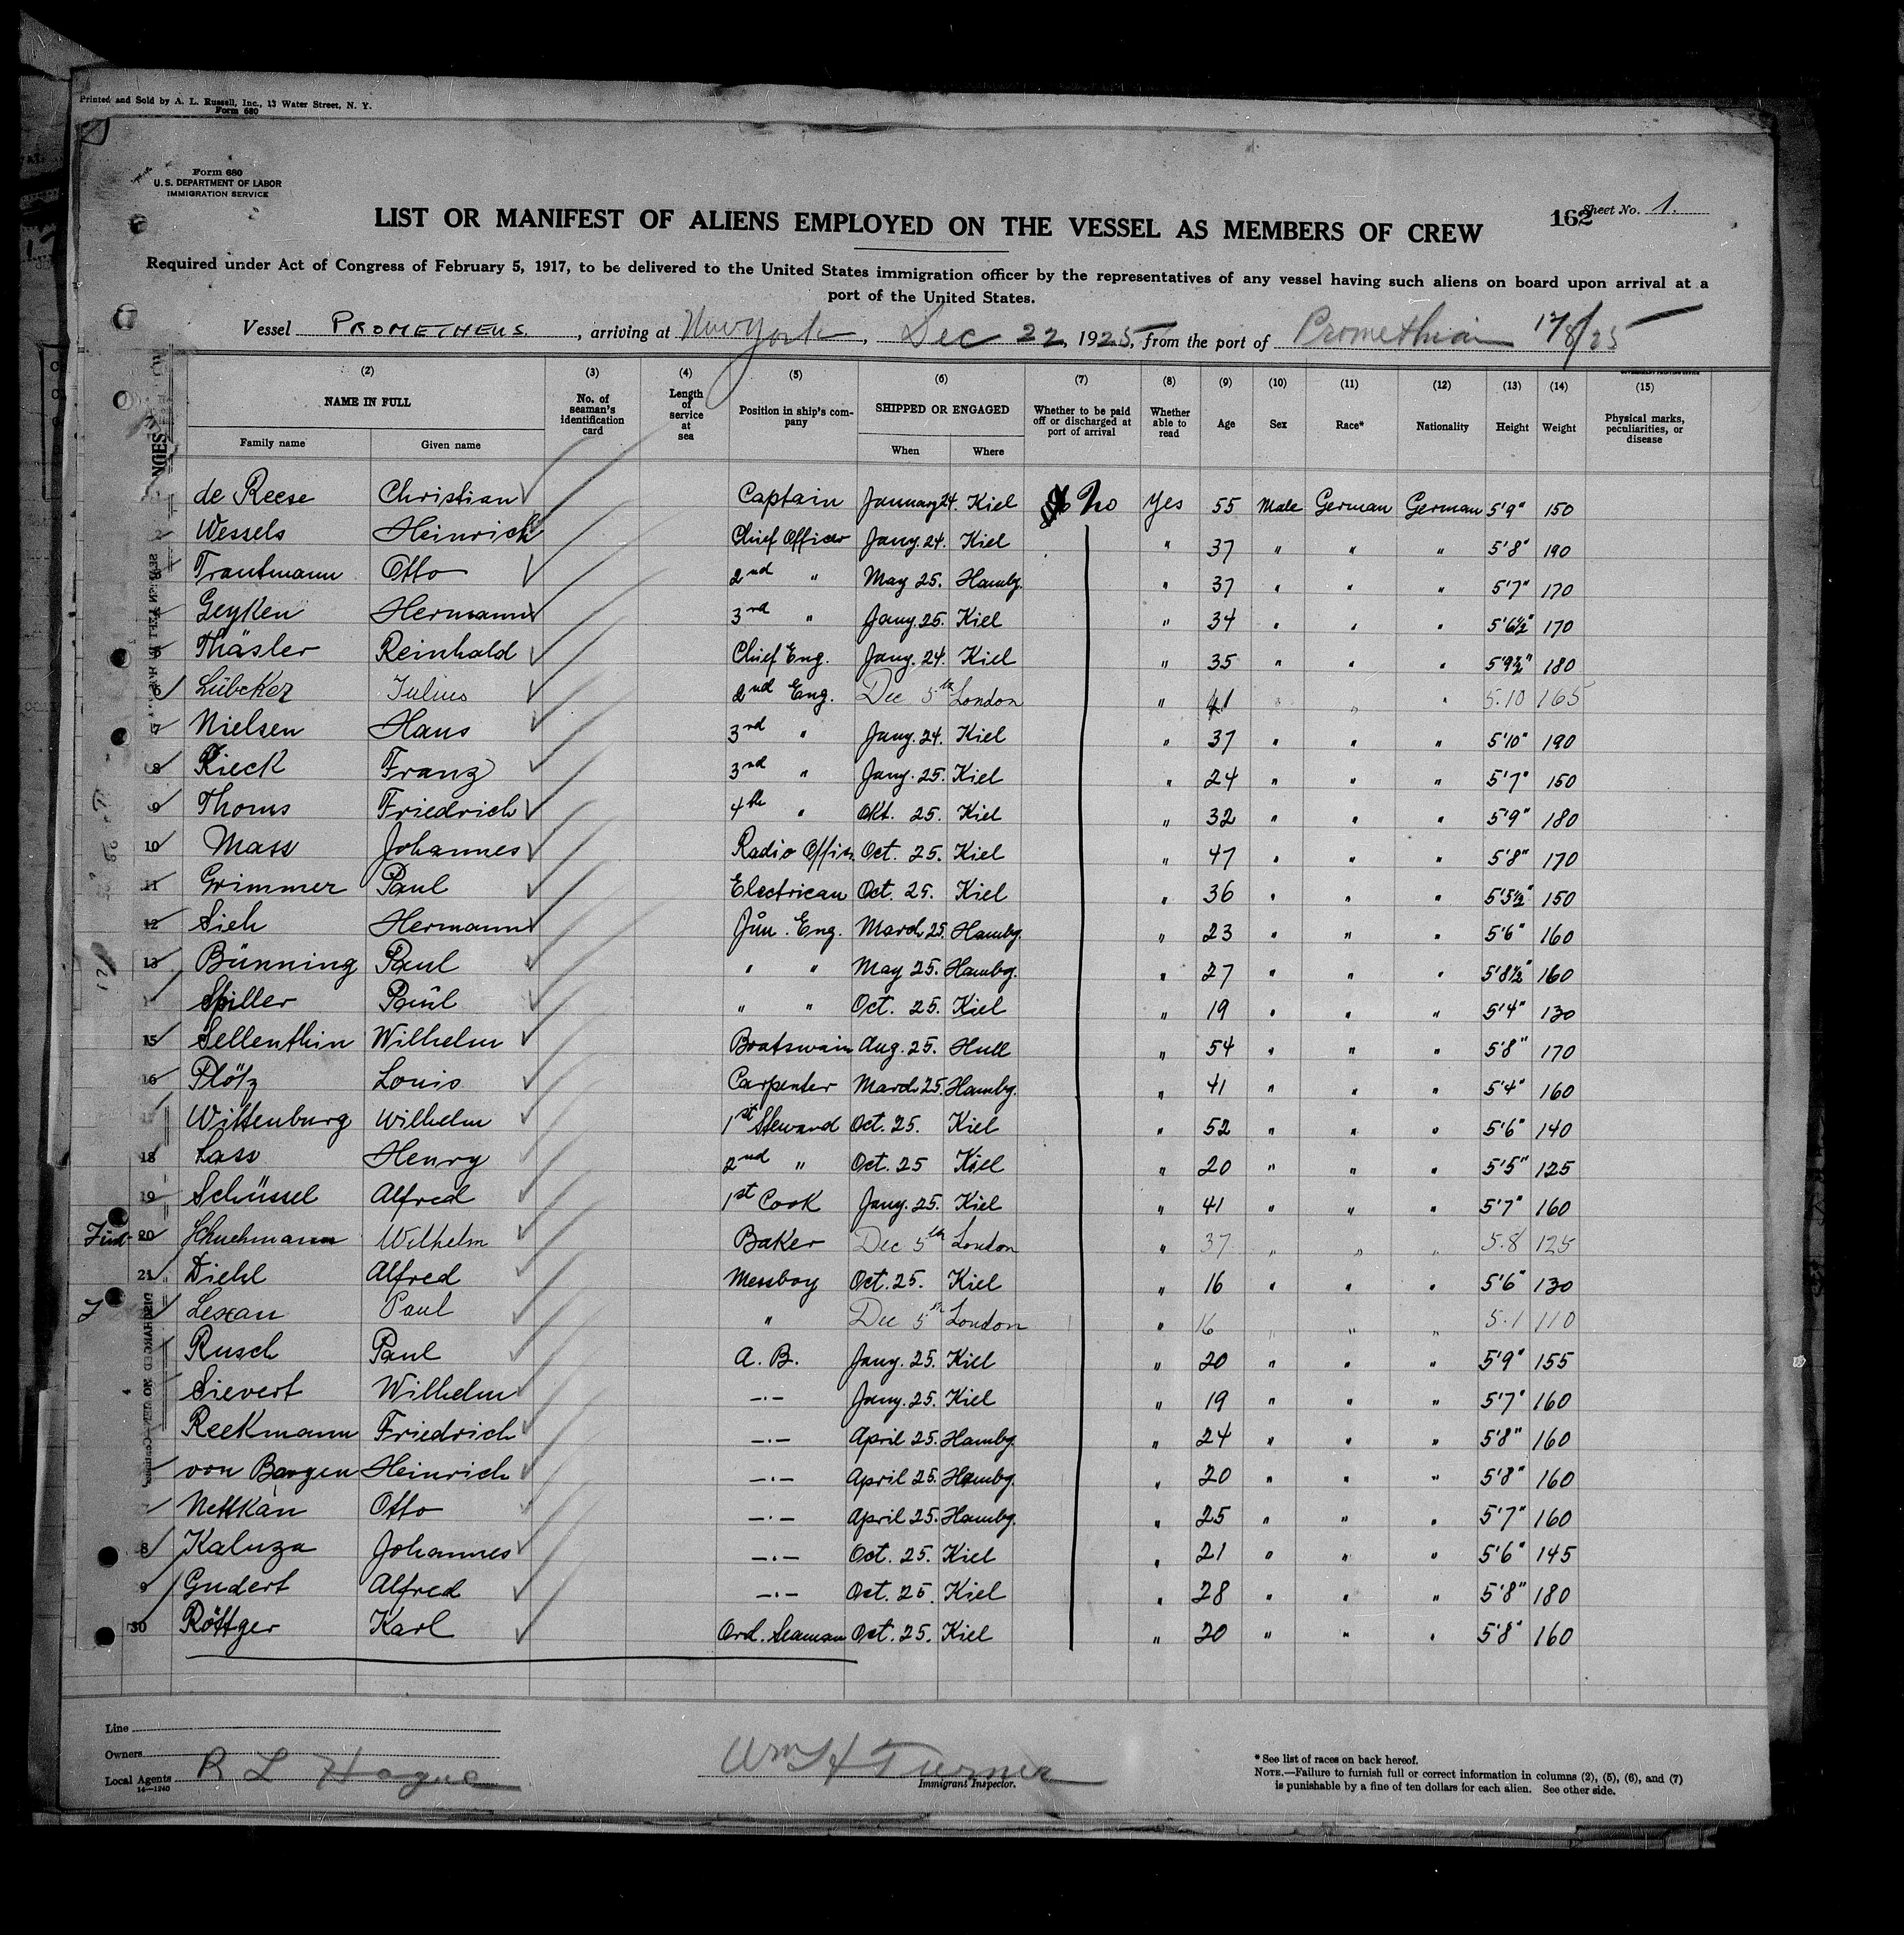 Printed and Sold by A. L. Russell, Inc., 13 Water Street, N. Y.
Form 680
Form 680
U.S. DEPARTMENT OF LABOR
IMMIGRATION SERVICE
162 Sheet No. 1.
LIST OR MANIFEST OF ALIENS EMPLOYED ON THE VESSEL AS MEMBERS OF CREW
Required under Act of Congress of February 5, 1917, to be delivered to the United States immigration officer by the representatives of any vessel having such aliens on board upon arrival at a
port of the United States.
Vessel PROMETHEUS. , arriving at New York , Dec 22, 1925, from the port of 12/8/25
(2) (3) (4) (5) (6) (7) (8) (9) (10) (11) (12) (13) (14) (15)
NAME IN FULL No. of seaman's identification card Length of service at sea Position in ship's company SHIPPED OR ENGAGED Whether to be paid off or discharged at port of arrival Whether able to read Age Sex Race* Nationality Height Weight Physical marks, peculiarities, or disease
Family name Given name When Where
de Reese Christian Captain January 24. Kiel No Yes 55 Male German German 5'9" 150
Wessels Heinrich Chief Officer Jany. 24. Kiel " 37 " " " 5'8" 190
Trautmann Otto 2nd " May 25. Hambg. " 37 " " " 5'7" 170
Geyken Hermann 3rd " Jany. 25. Kiel " 34 " " " 5'6½" 170
Thäsler Reinhald Chief Eng. Jany. 24. Kiel " 35 " " " 5'9½" 180
Lübcker Julius 2nd Eng. Dec 5th London " 41 " " " 5.10 165
Nielsen Hans 3rd " Jany. 24. Kiel " 37 " " " 5'10" 190
8 Rieck Franz 3rd " Jany. 25. Kiel " 24 " " " 5'7" 150
9 Thoms Friedrich 4th " Okt. 25. Kiel " 32 " " " 5'9" 180
10 Mass Johannes Radio Offic. Oct. 25. Kiel " 47 " " " 5'8" 170
11 Grimmer Paul Electrican Oct. 25. Kiel " 36 " " " 5'5½" 150
12 Sieh Hermann Jün. Eng. March 25. Hambg. " 23 " " " 5'6" 160
13 Bünning Paul " " May 25. Hambg. " 27 " " " 5'8½" 160
Spiller Paul " " Oct. 25. Kiel " 19 " " " 5'4" 130
15 Sellenthin Wilhelm Boatswain Aug. 25. Hull " 54 " " " 5'8" 170
16 Plötz Louis Carpenter March 25. Hambg. " 41 " " " 5'4" 160
Wittenburg Wilhelm 1st Steward Oct. 25. Kiel " 52 " " " 5'6" 140
18 Lass Henry 2nd " Oct. 25 Kiel " 20 " " " 5'5" 125
19 Schüssel Alfred 1st Cook Jany. 25. Kiel " 41 " " " 5'7" 160
20 Schuehmann Wilhelm Baker Dec 5th London " 37 " " " 5.8 125
21 Diehl Alfred Messboy Oct. 25. Kiel " 16 " " " 5'6" 130
Lexan Paul " Dec 5th London " 16 " " " 5.1 110
Rusch Paul A. B. Jany. 25. Kiel " 20 " " " 5'9" 155
Sievert Wilhelm -·- Jany. 25. Kiel " 19 " " " 5'7" 160
Reekmann Friedrich -·- April 25. Hambg. " 24 " " " 5'8" 160
von Bargen Heinrich -·- April 25. Hambg. " 20 " " " 5'8" 160
Nettkan Otto -·- April 25. Hambg. " 25 " " " 5'7" 160
8 Kaluza Johannes -·- Oct. 25. Kiel " 21 " " " 5'6" 145
9 Gudert Alfred -·- Oct. 25. Kiel " 28 " " " 5'8" 180
30 Röttger Karl Ord. Seaman Oct. 25. Kiel " 20 " " " 5'8" 160
Line
Owners
Local Agents R L Hague
14—1240
Wm H Turner
Immigrant Inspector.
* See list of races on back hereof.
NOTE.—Failure to furnish full or correct information in columns (2), (5), (6), and (7)
is punishable by a fine of ten dollars for each alien. See other side.